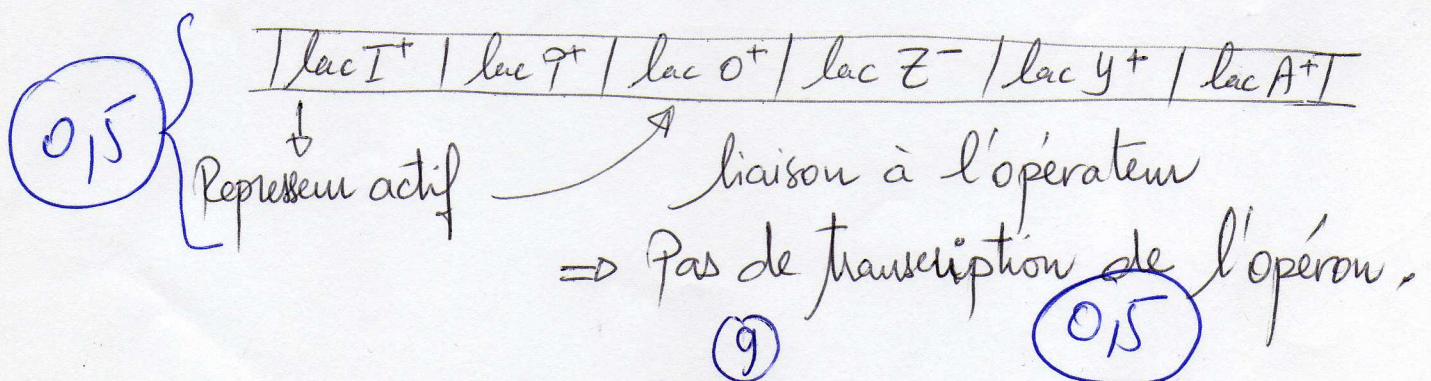 | lac I⁺ | lac P⁺ | lac O⁺ | lac Z⁻ | lac Y⁺ | lac A⁺ |
0,5
Represseur actif
liaison à l'opérateur
=> Pas de transcription de l'opéron.
0,5
9